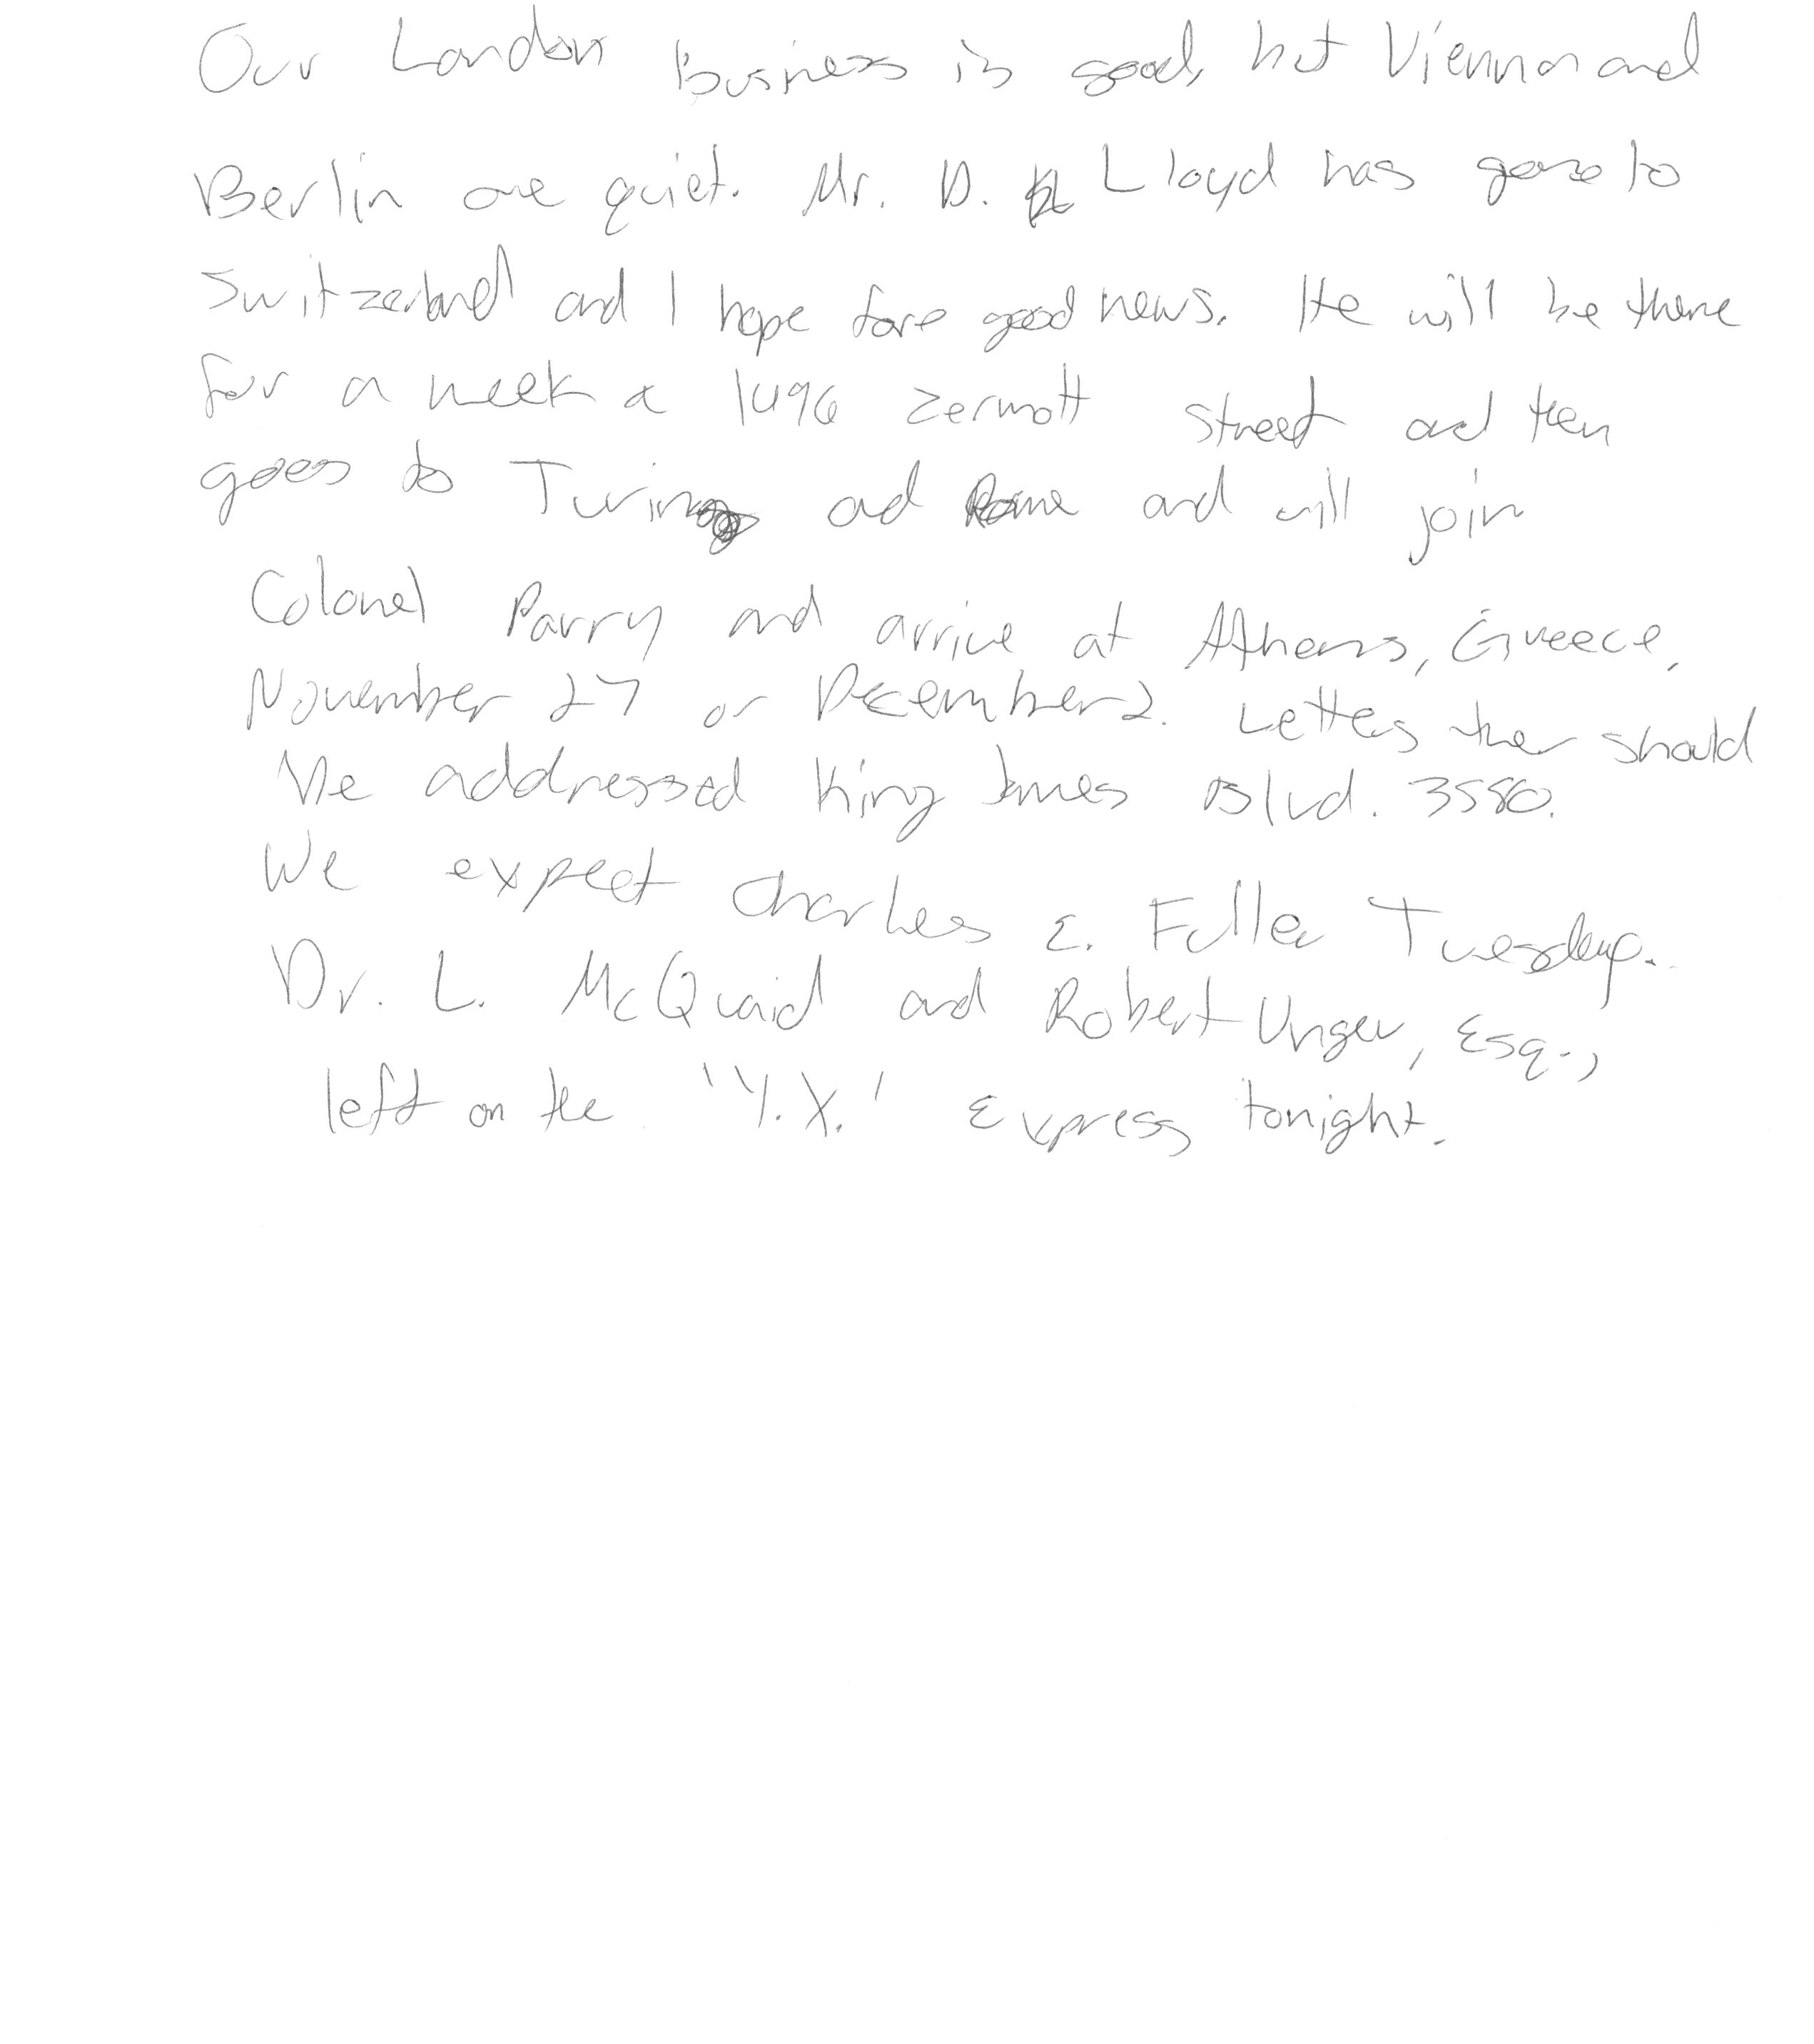 Our London business is good, but Vienna and
Berlin are quiet. Mr. D. Lloyd has gone to
Switzerland and I hope fore good news. He will be there
for a week a 1496 Zermott street and then
goes to Turin and Rome and will join
Colonel Parry and arrive at Athens, Greece,
November 27 or December 2. Letters ther should
be addressed King James Blvd. 3580.
We expect Charles E. Fuller Tuesday.
Dr. L. McQuaid and Robert Unger, Esq.,
left on the 'Y.X.' Express tonight.